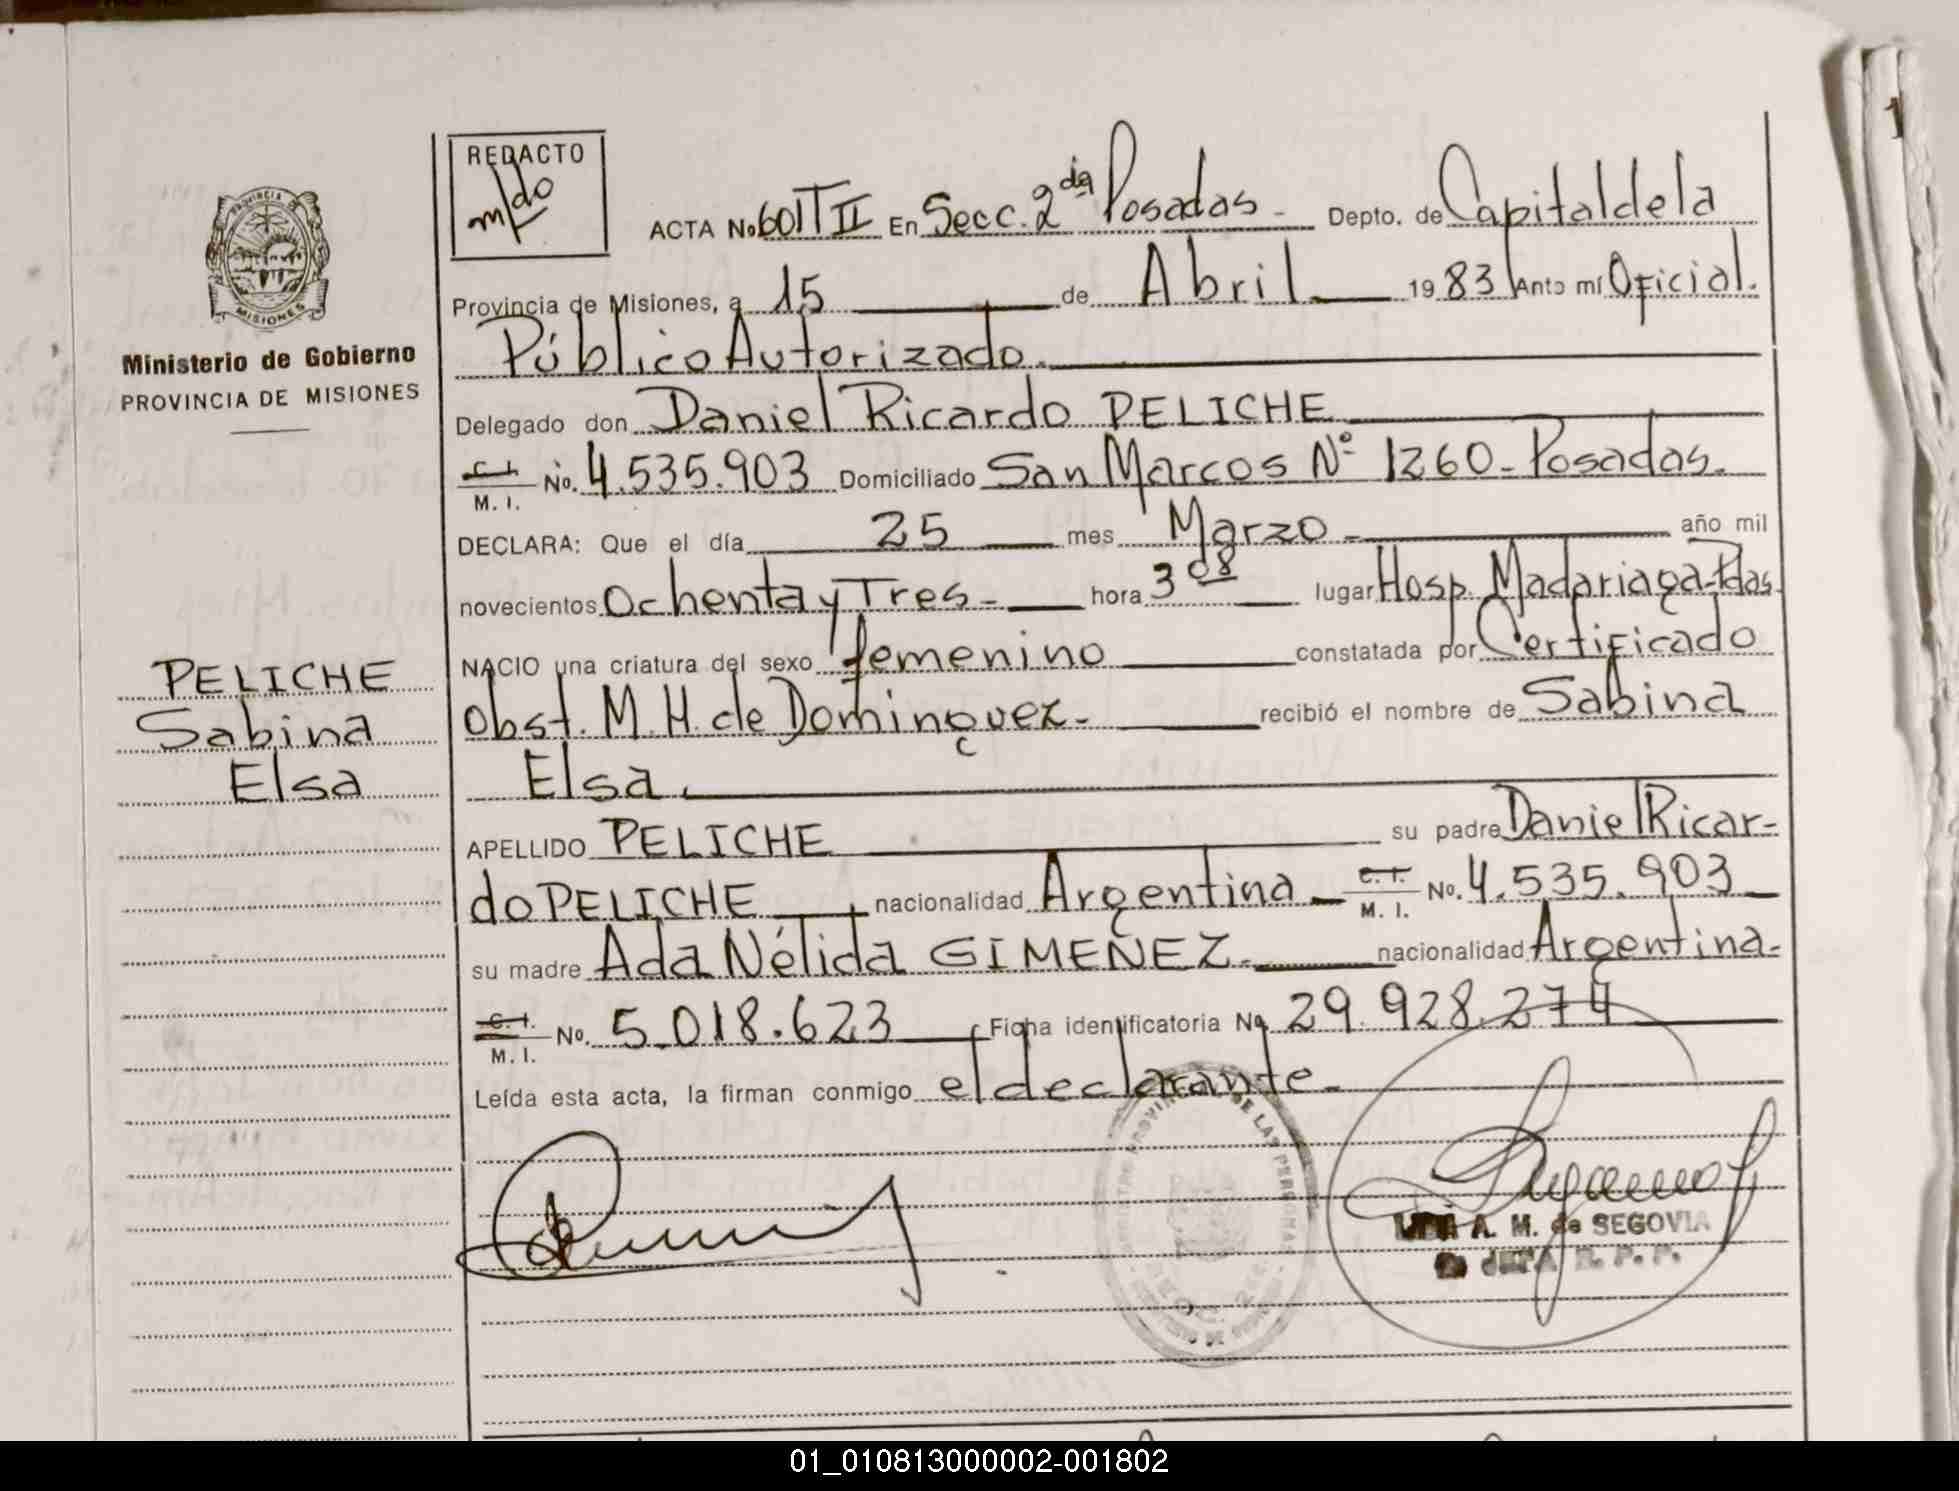 REDACTO
ACTA No. 601 T II En Secc. 2da Posadas - Depto. de Capital de la
Provincia de Misiones, a 15 de Abril 1983 Ante mí Oficial.
Público Autorizado.
Delegado don Daniel Ricardo PELICHE
C. I. M. I. No. 4.535.903 Domiciliado San Marcos Nº 1260 - Posadas.
DECLARA: Que el día 25 mes Marzo - año mil
novecientos Ochenta y Tres - hora 3 08 lugar Hosp. Madariaga - Pdas.
NACIO una criatura del sexo femenino constatada por Certificado
Obst. M. H. de Dominguez - recibió el nombre de Sabina
Elsa.
APELLIDO PELICHE su padre Daniel Ricar-
do PELICHE nacionalidad Argentina - C. I. M. I. No. 4.535.903
su madre Ada Nélida GIMEÑEZ. nacionalidad Argentina -
C. I. M. I. No. 5.018.623 Ficha identificatoria No. 29.928.274
Leída esta acta, la firman conmigo el declarante -
PROVINCIA DE
MISIONES
Ministerio de Gobierno
PROVINCIA DE MISIONES
PELICHE
Sabina
Elsa
DE LAS PERSONAS
A. M. de SEGOVIA
JEFA R. P. P.
01_010813000002-001802